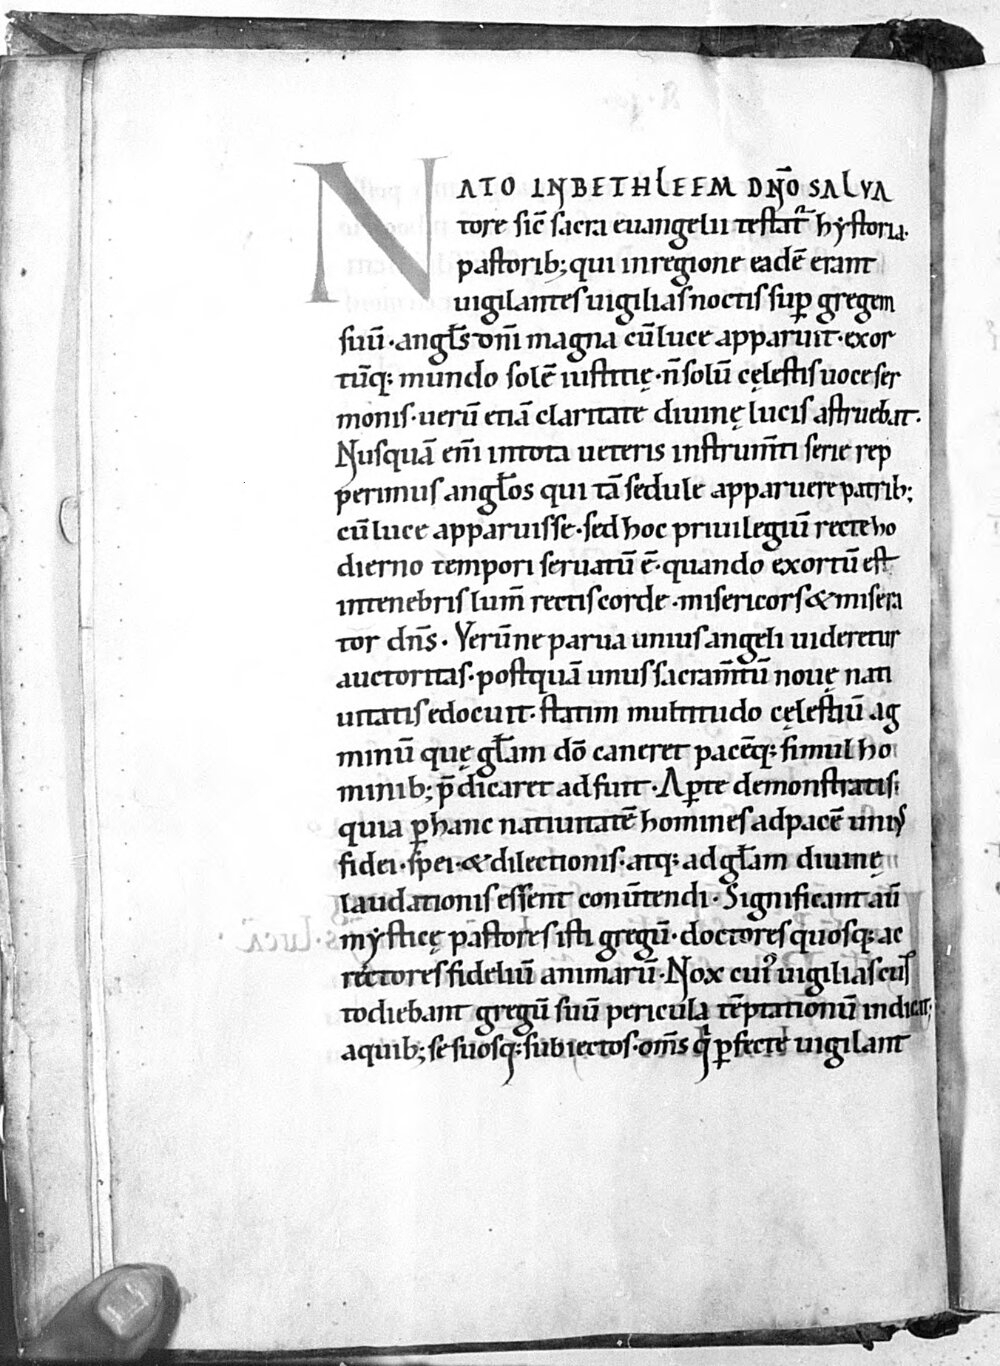 NATO IN BETHLEEM DN̄O SALVA
tore sic̄ sacra euangelii testat᷑ hẏstoria.
pastorib; qui in regione eadē erant
uigilantes uigilias noctis sup̲ gregem
suū · angl̄s dn̄i magna cū luce apparuit · exor
tūq; mundo solē iustitię · n̄ solū cęlestis uoce ser
monis · uerū etiā claritate diuinę lucis astruebat.
Nusquā en̄i in tota ueteris instrum̄ti serie rep
perimus angl̄os qui tā sedule apparuere patrib;
cū luce apparuisse · sed hoc priuilegiū recte ho
dierno tempori seruatū ē · quando exortū est
in tenebris lum̄ rectis corde · misericors & misera
tor dn̄s · Verū ne parua unius angeli uideretur
auctoritas · postquā unus sacram̄tū nouę nati
uitatis edocuit · statim multitudo cęlestiū ag
minū quę gl̄am dō caneret pacēq; simul ho
minib; p̄dicaret adfuit · Ap̲te demonstratis
quia p̲ hanc natiuitatē homines ad pacē uniꝰ
fidei · spei · & dilectionis · atq; ad gl̄am diuinę
laudationis essent conūtendi · Significant aū
mẏsticę pastores isti gregū · doctores quosq; ac
rectores fideliū animarū · Nox cuiꝰ uigilias cus
todiebant gregū suū pericula tēptationū indicat;
a quib; se suosq; subiectos · om̄s qⁱ p̲fecte uigilant